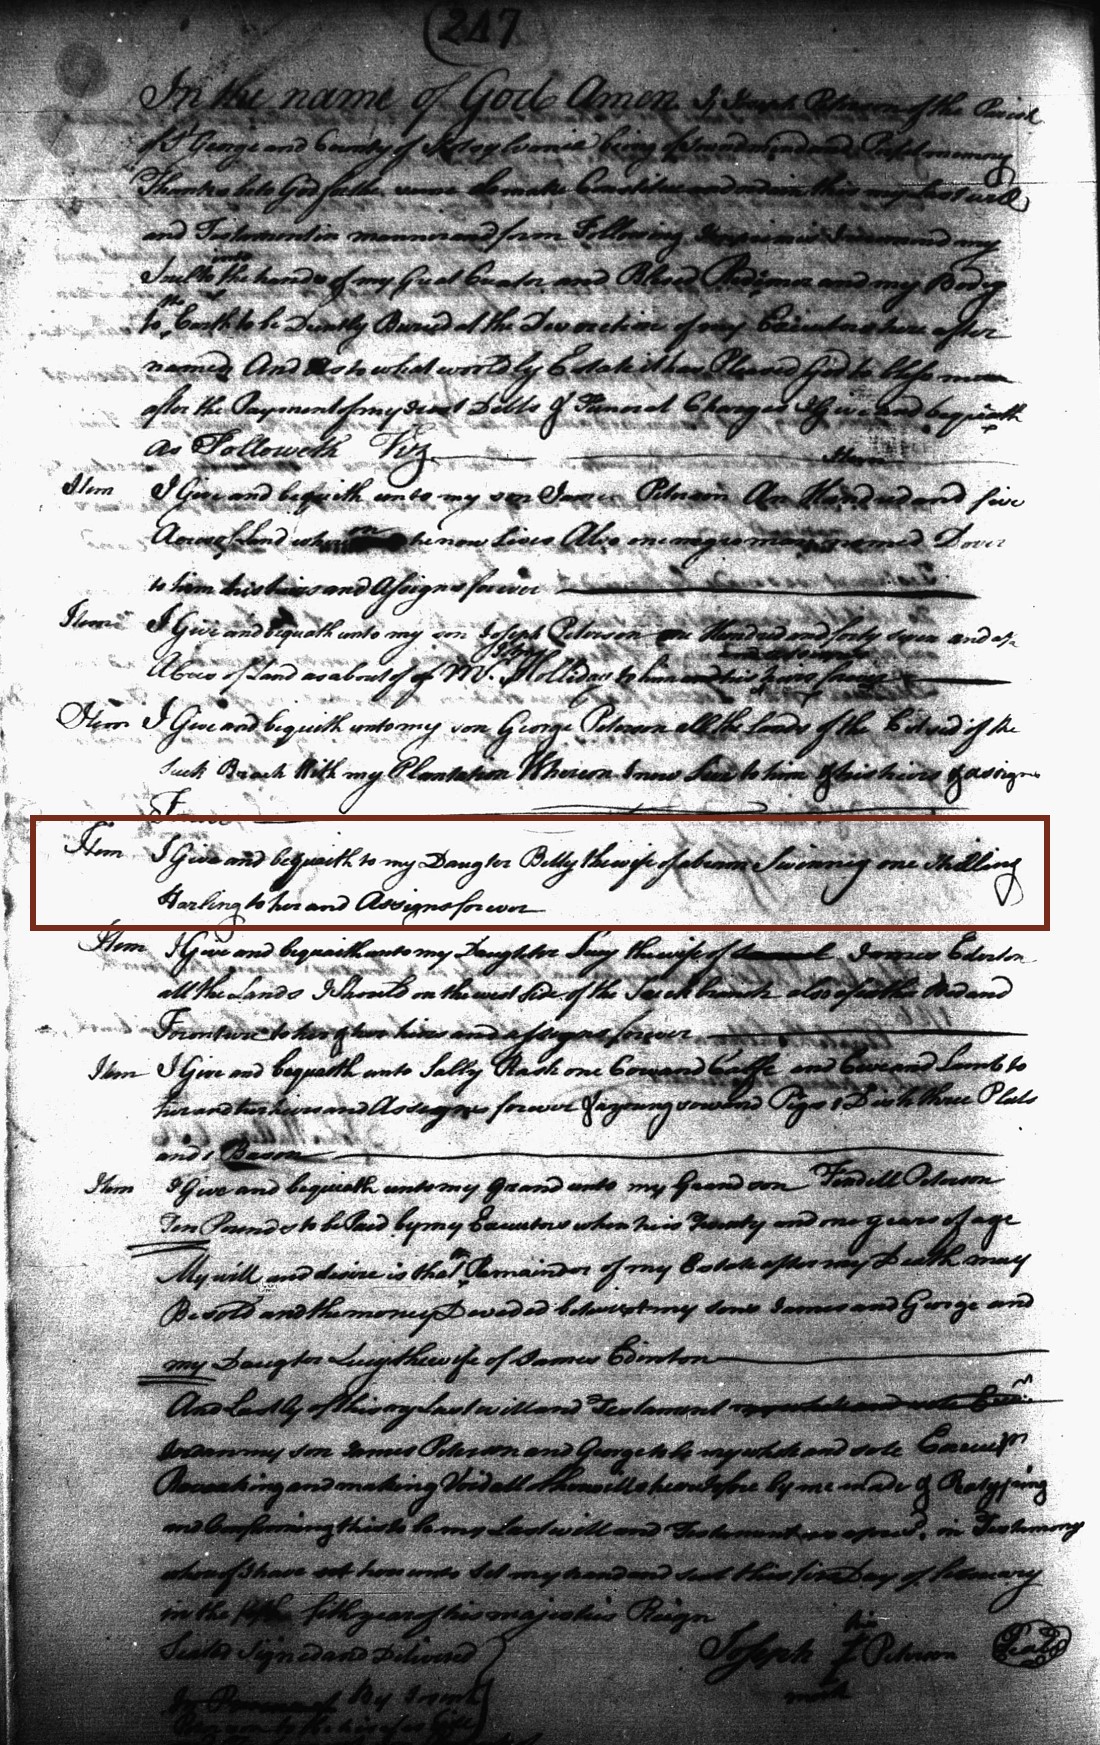 247
In the name of God Amen I Joseph Peterson of the Parish
of St George and County of Spotsylvania being of Sound mind and Perfect memory
Thanks be to God for the same do make Constitute and ordain this my Last will
and Testament in manner and form Following Imprimis I recommend my
Soul into the hands of my Great Creator and Blessed Redemer and my Body
to the Earth to be Decently Buried at the Descretion of my Executors here after
named And As to what worldly Estate it has Pleased God to bless me
after the Payment of my Just Debts & Funeral Charges I Give and bequeath
as Followeth Viz
Item
Item I Give and bequeath unto my son James Peterson An Hundred and five
Acres of Land where on he now Lives Also one negro man named Dover
to him his heirs and Assigns forever
Item I Give and bequeath unto my son Joseph Peterson one Hundred and forty seven and
Acres of Land as about of Mr. Holliday to him and his heirs forever
Item I Give and bequeath unto my son George Peterson all the Lands of the Est sid of the
Suck Brach With my Plantation Whereon I now Live to him & his heirs & assigns
Forever
Item I Give and bequeath to my Daugter Betty the wife of Swinney one Shilling
Starling to her and Assigns forever
Item I Give and bequeath unto my Daughter Lucy the wife of James Ederton
all the Lands I Should on the west Side of the Suck branch also a feather Bed and
Fornture to her & her heirs and assigns forever
Item I Give and bequeath unto Salley Rash one Cow and Calfe and Ewe and Lamb to
her and her heirs and Assigns forever & a young sow and Pigs 1 Dish three Plats
and 1 Bason
Item I Give and bequeath unto my grand unto my Grand son Peterson
Ten Pounds to be Paid by my Executors when he is Twenty and one years of age
My will and desire is that Remainder of my Estate after my Death may
Be sold and the money Devided betwixt my sons James and George and
my Daugter Lucy the wife of James Ederton
And Lastly of this my Last will and Testament
Ordain my son James Peterson and George to be my whole and sole
Revoaking and making Void all other wills heretofore by me made & Ratyfying
and Confirming this to be my Last will and Testament in Testamony
whereof I have set hereunto Set my hand and seal this Day of
in the fifth year of his majesties Reign
Sealed Signed and Delivered
his
Joseph Peterson Seal
mark
In By